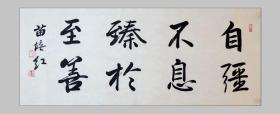 自疆
不息
臻於
至善
苗培红